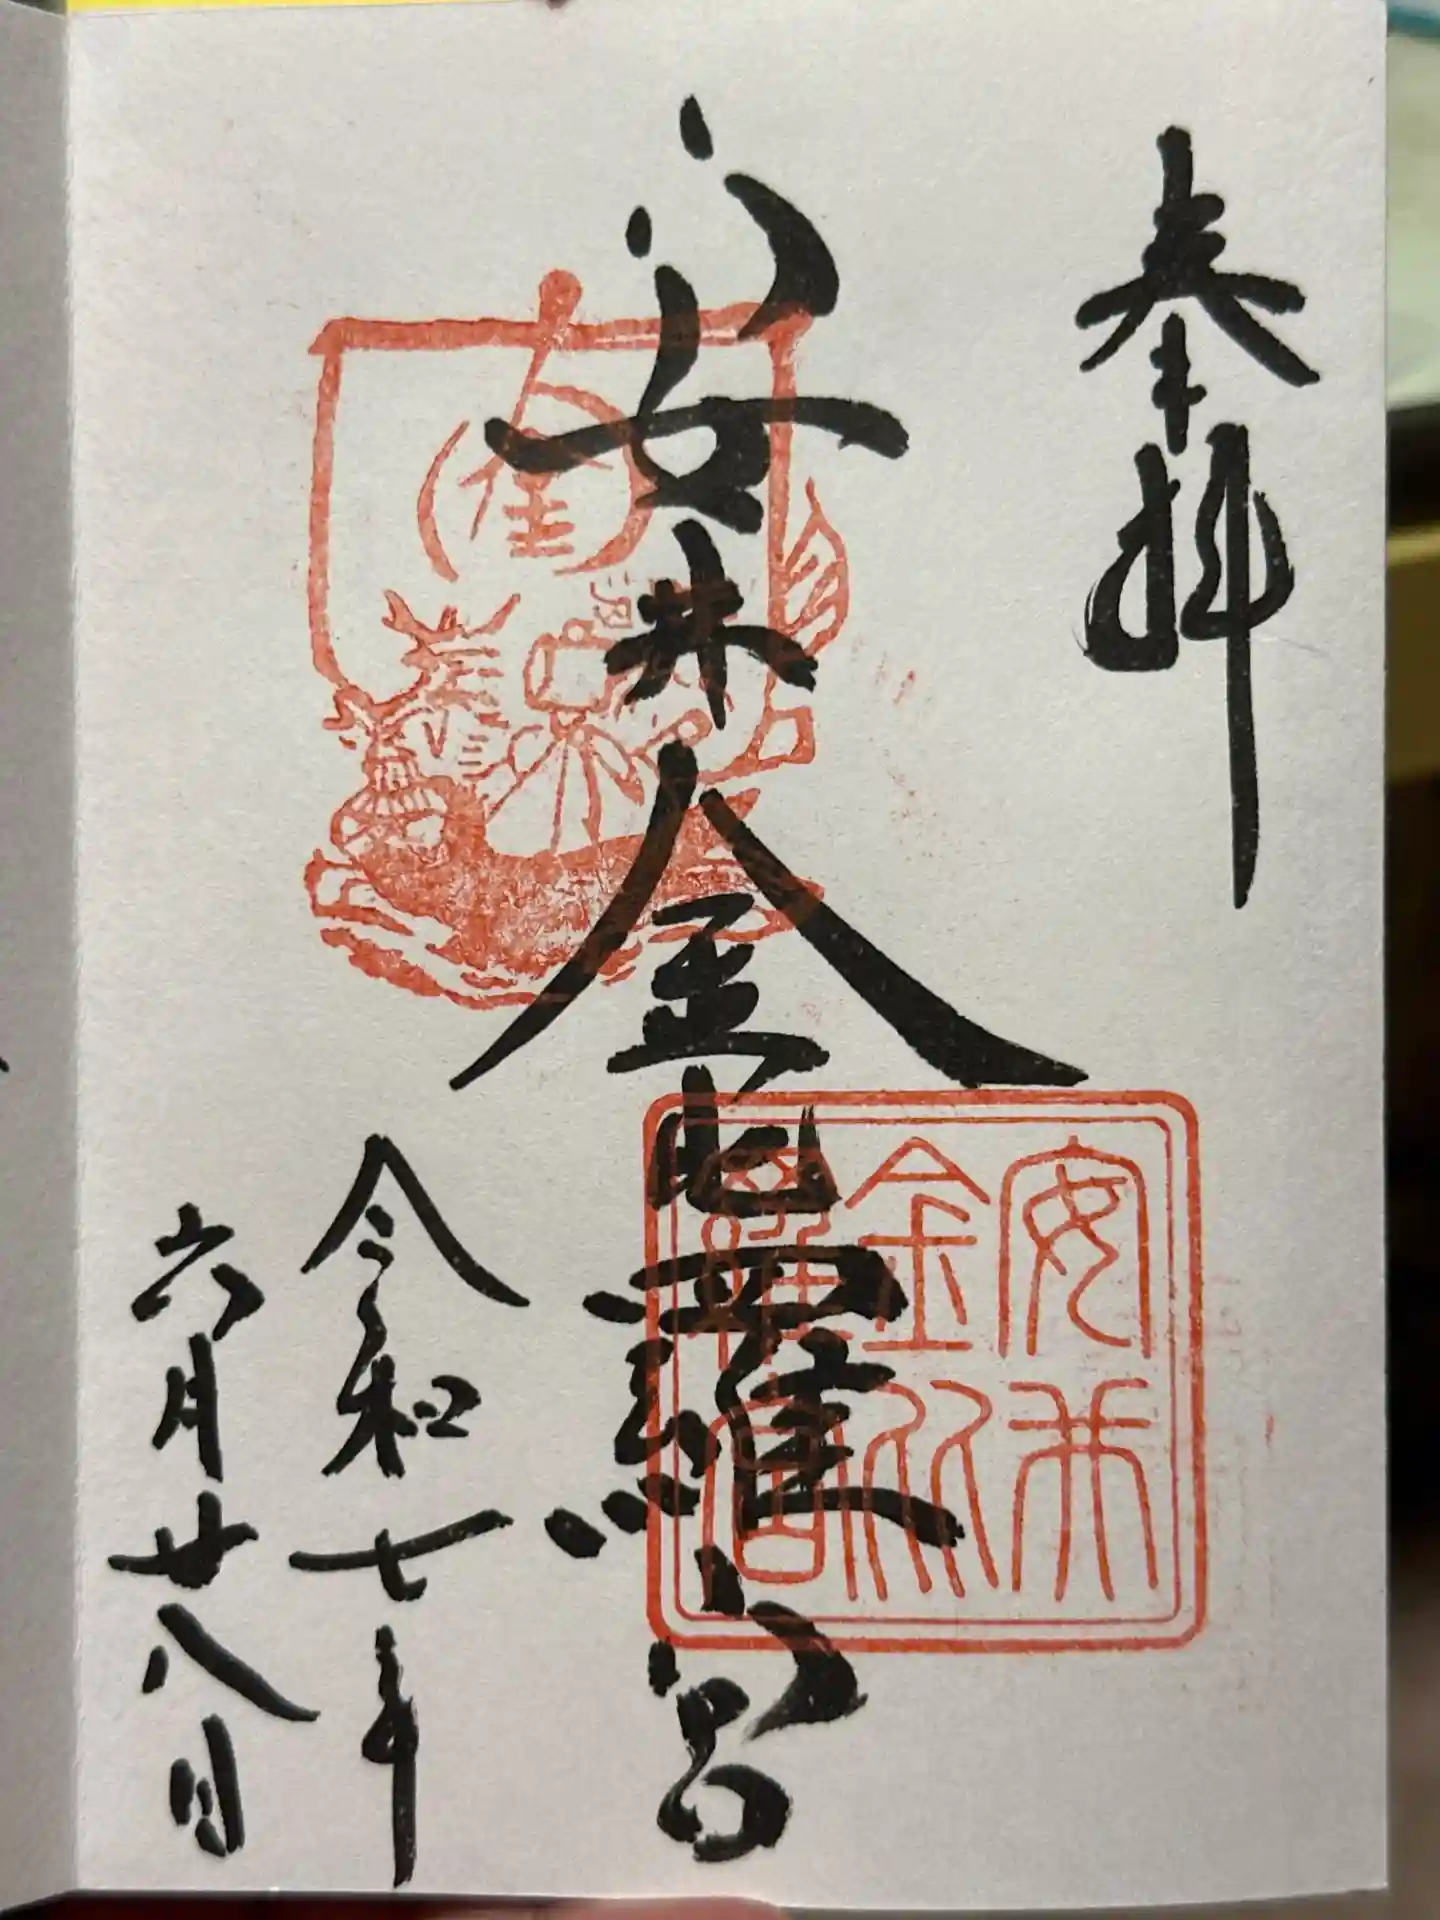 奉拝
安井金比羅宮
令和七年
六月廿八日
金
安井
金比
羅宮